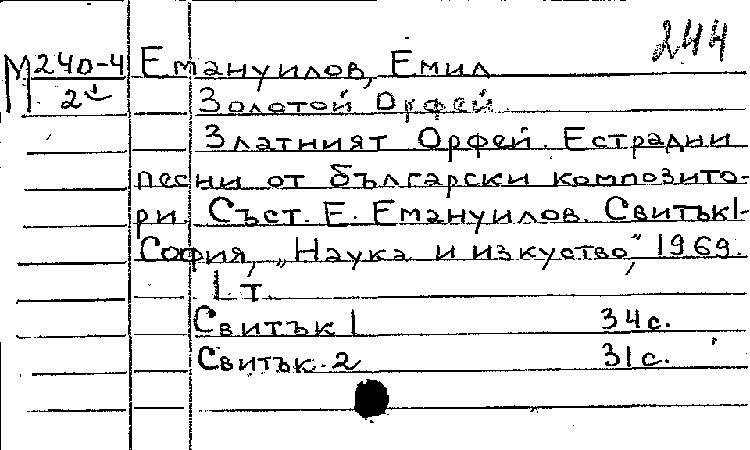 244
М 240-4 Емануилов, Емил
2 Золотой Орфей.
Златният Орфей. Естрадни
песни от български композито-
ри. Съст. Е. Емануилов. Свитък 1-
София, „Наука и изкуство", 1969.
1 т.
Свитък 1 34 с.
Свитък 2 31 с.